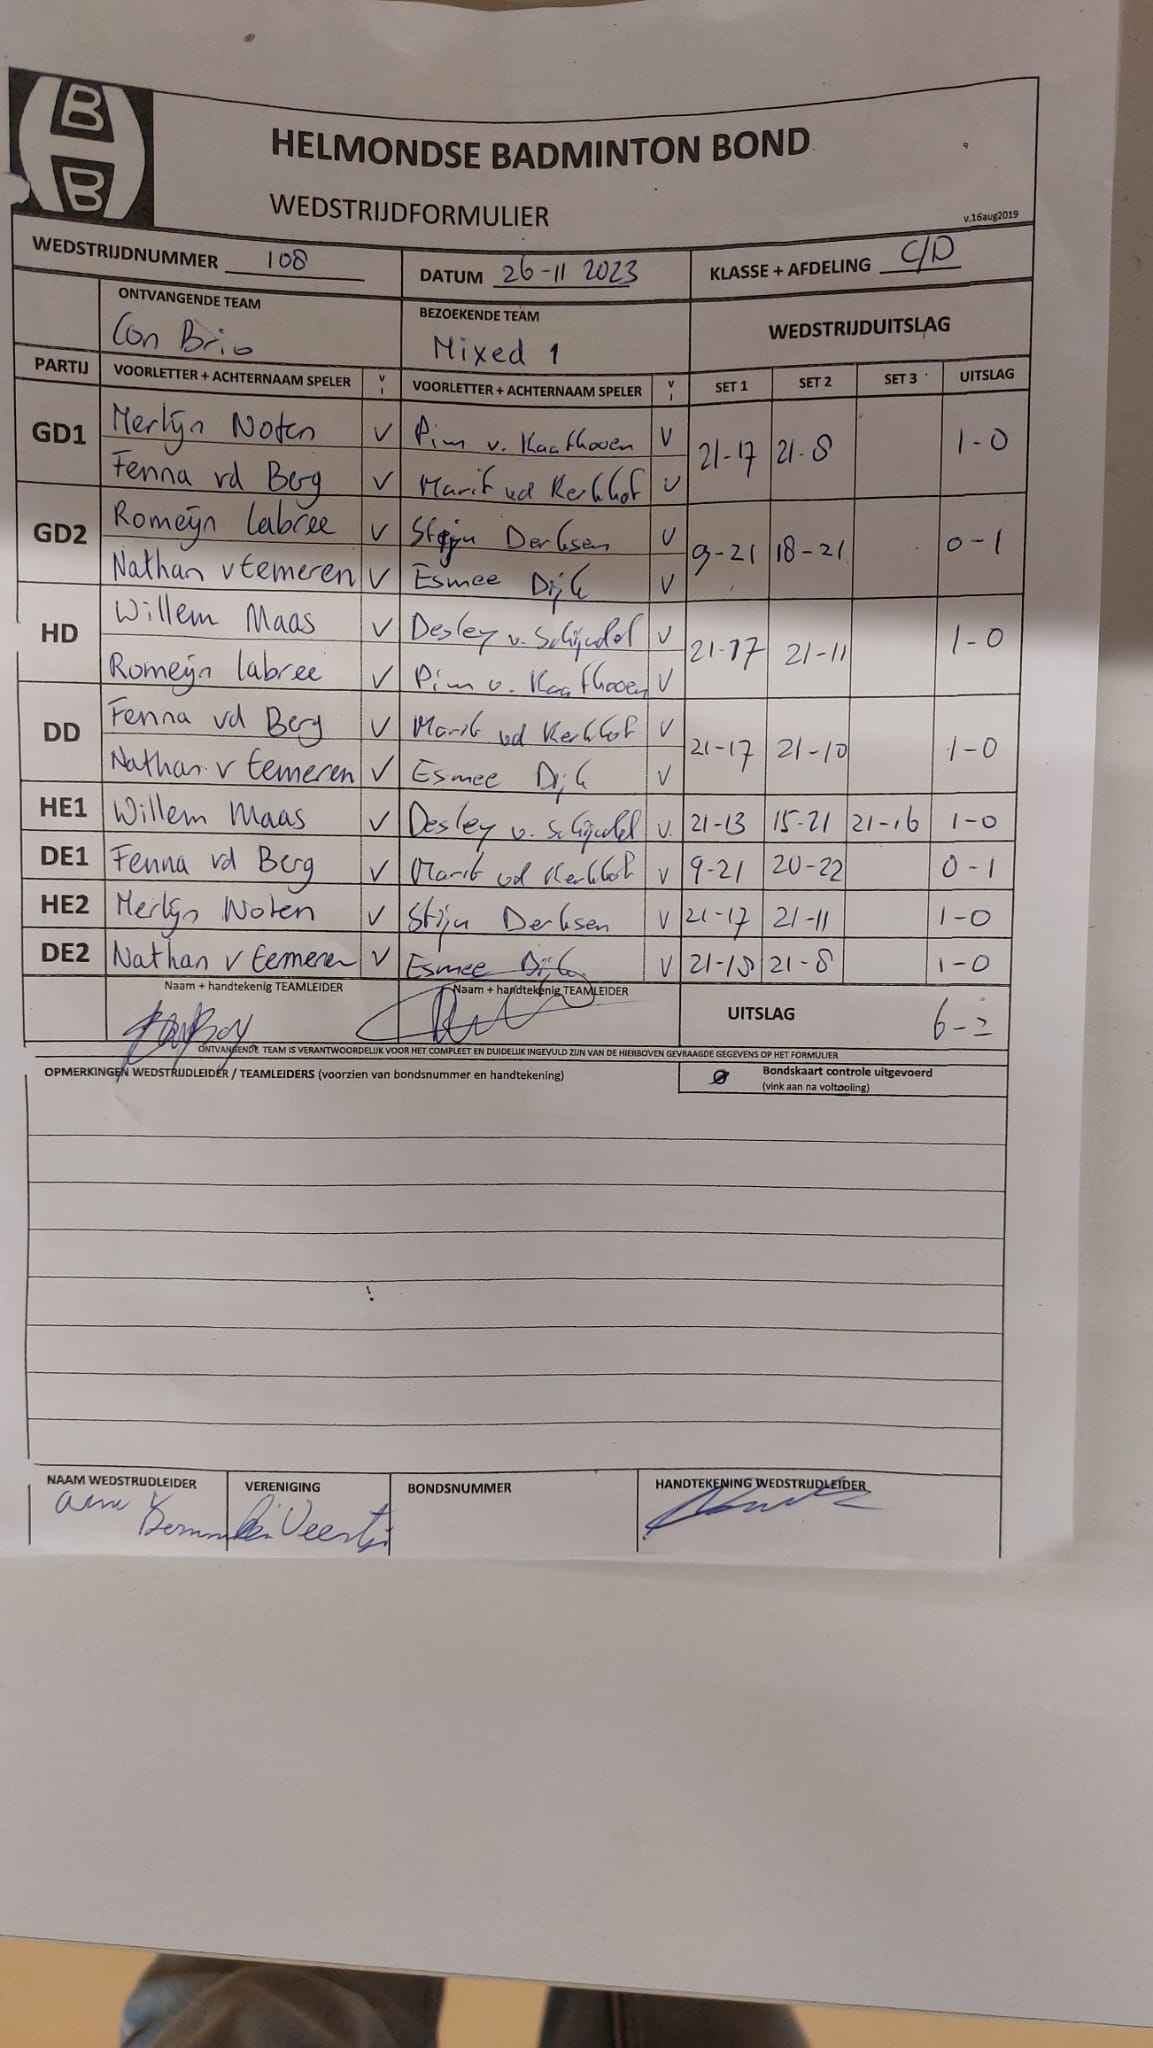 B
B
HELMONDSE BADMINTON BOND
WEDSTRIJDFORMULIER
v.16aug2019
WEDSTRIJDNUMMER 108 DATUM 26-11 2023 KLASSE + AFDELING C/D
ONTVANGENDE TEAM BEZOEKENDE TEAM WEDSTRIJDUITSLAG
Con Brio Mixed 1
PARTIJ VOORLETTER + ACHTERNAAM SPELER V VOORLETTER + ACHTERNAAM SPELER V SET 1 SET 2 SET 3 UITSLAG
GD1 Merlijn Noten V Pim v. Kaathoven V 21-17 21-8 1-0
Fenna vd Berg V Marit vd Kerkhof V
GD2 Romeijn Labree V Stijn Derksen V 9-21 18-21 0-1
Nathan v Eemeren V Esmee Dijk V
HD Willem Maas V Desley v. Schijndel V 21-17 21-11 1-0
Romeijn Labree V Pim v. Kaathoven V
DD Fenna vd Berg V Marit vd Kerkhof V 21-17 21-10 1-0
Nathan v Eemeren V Esmee Dijk V
HE1 Willem Maas V Desley v. Schijndel V. 21-13 15-21 21-16 1-0
DE1 Fenna vd Berg V Marit vd Kerkhof V 9-21 20-22 0-1
HE2 Merlijn Noten V Stijn Derksen V 21-17 21-11 1-0
DE2 Nathan v Eemeren V Esmee Dijk V 21-18 21-8 1-0
Naam + handtekenig TEAMLEIDER Naam + handtekenig TEAMLEIDER UITSLAG 6-2
ONTVANGENDE TEAM IS VERANTWOORDELIJK VOOR HET COMPLEET EN DUIDELIJK INGEVULD ZIJN VAN DE HIERBOVEN GEVRAAGDE GEGEVENS OP HET FORMULIER
OPMERKINGEN WEDSTRIJDLEIDER / TEAMLEIDERS (voorzien van bondsnummer en handtekening) Bondskaart controle uitgevoerd
(vink aan na voltooiing)
NAAM WEDSTRIJDLEIDER VERENIGING BONDSNUMMER HANDTEKENING WEDSTRIJDLEIDER